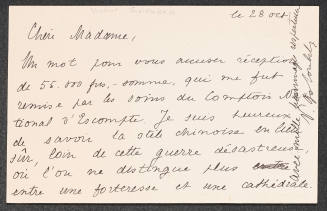 le 28 oct
Chère Madame,
Un mot pour vous accuser réception
de 55.000 frs,- somme, qui me fut
remise par les soins du Comptoir Na
tional d'Escompte. Je suis heureux
de savoir la stèle chinoise en lieu
sûr, loin de cette guerre désastreuse
où l'on ne distingue plus
entre une forteresse et une cathédrale.
avec mille hommages respectueux